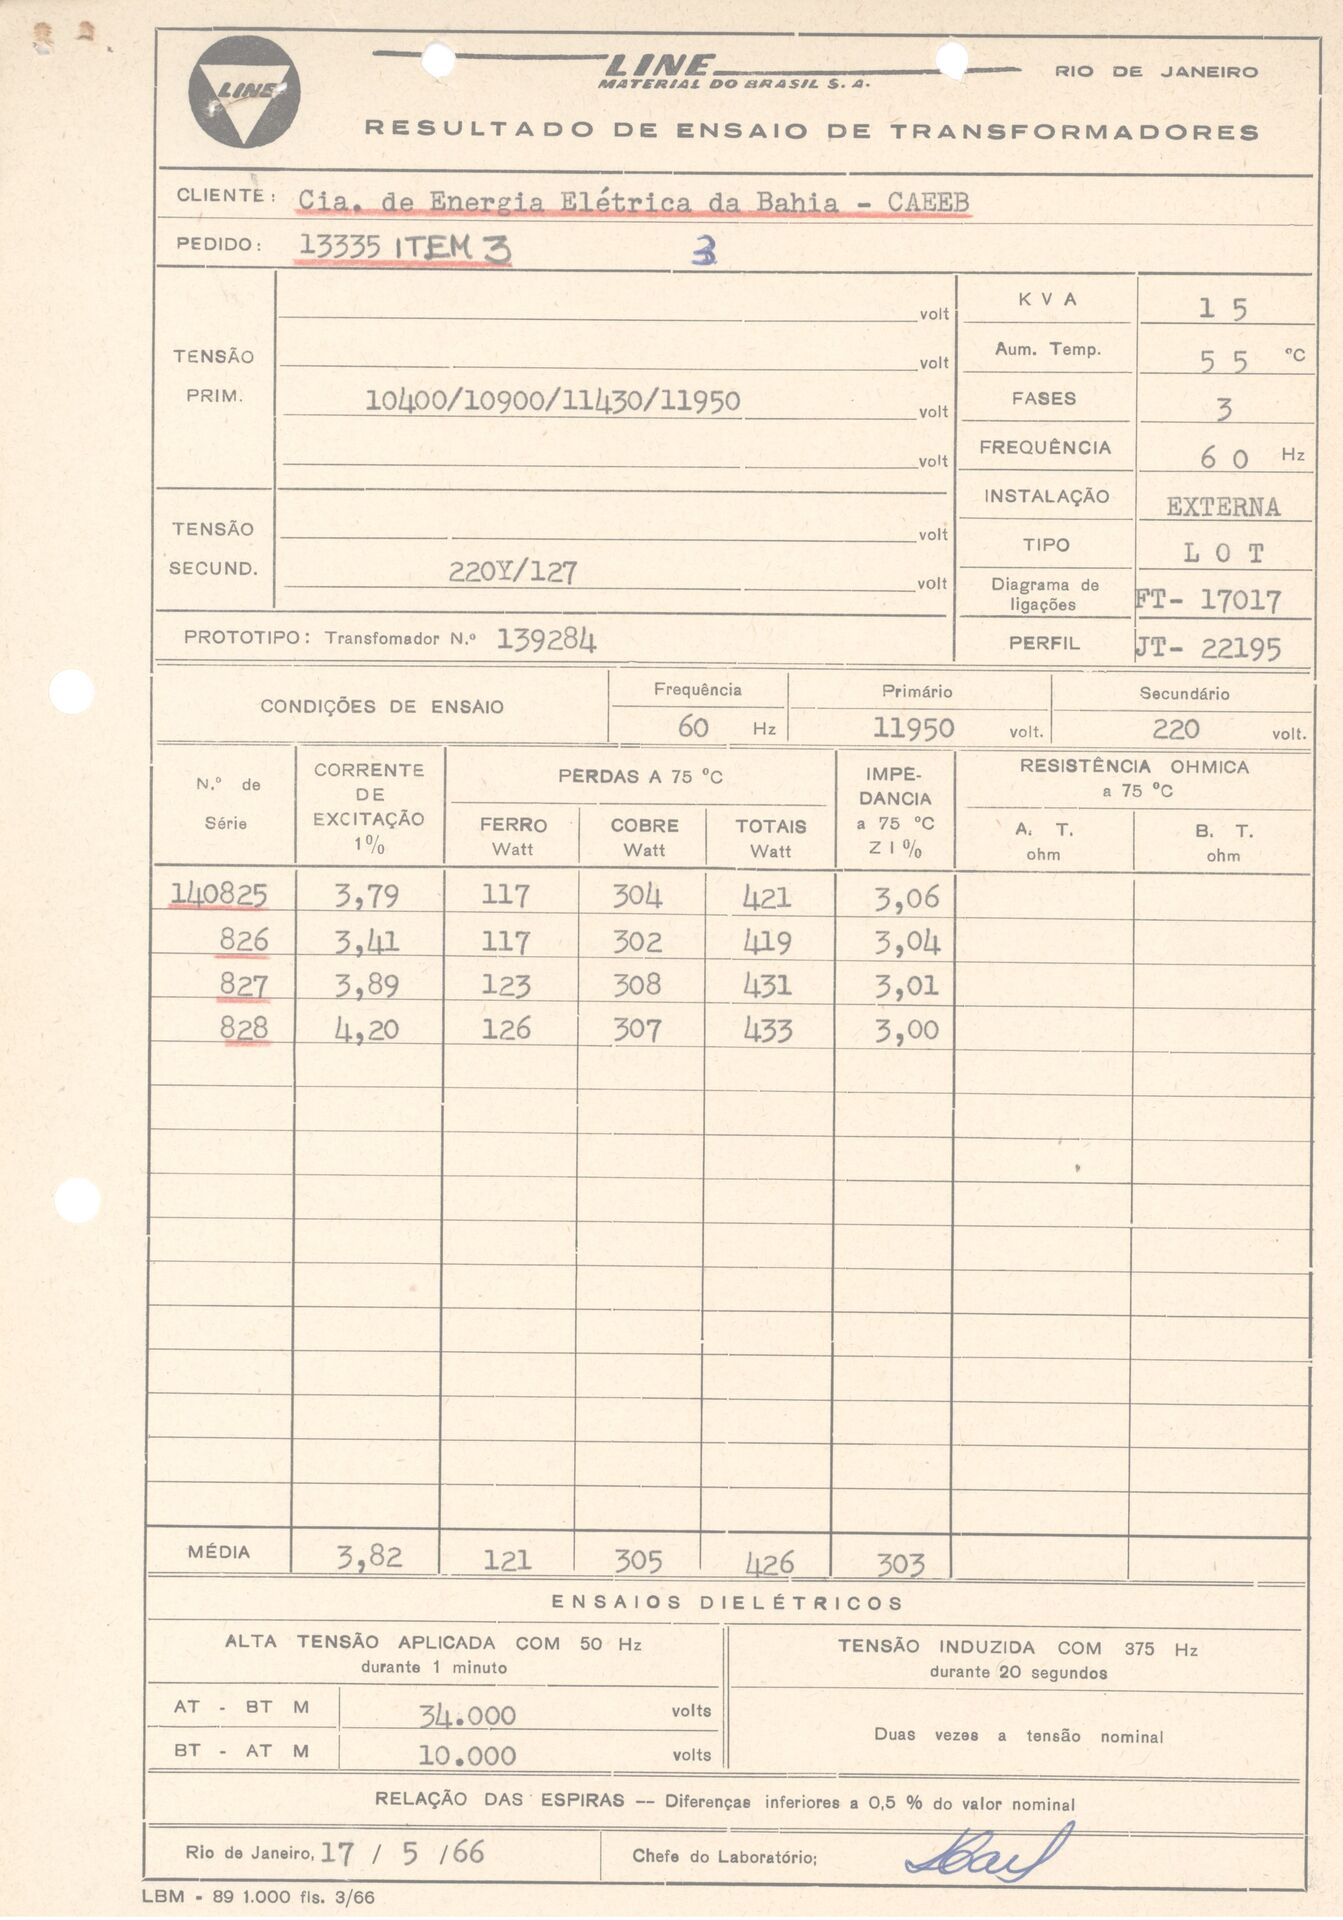 LINE
LINE
MATERIAL DO BRASIL S. A.
RIO DE JANEIRO
RESULTADO DE ENSAIO DE TRANSFORMADORES
CLIENTE: Cia. de Energia Elétrica da Bahia - CAEEB
PEDIDO: 13335 ITEM 3 3
TENSÃO PRIM.
volt
volt
10400/10900/11430/11950 volt
volt
TENSÃO SECUND.
volt
220Y/127 volt
PROTOTIPO: Transfomador N.º 139284
K V A 1 5
Aum. Temp. 5 5 ºC
FASES 3
FREQUÊNCIA 6 0 Hz
INSTALAÇÃO EXTERNA
TIPO L O T
Diagrama de ligações FT- 17017
PERFIL JT- 22195
CONDIÇÕES DE ENSAIO
Frequência 60 Hz
Primário 11950 volt.
Secundário 220 volt.
N.º de Série
CORRENTE DE EXCITAÇÃO 1%
PERDAS A 75 ºC
FERRO Watt
COBRE Watt
TOTAIS Watt
IMPE-DANCIA a 75 ºC Z I %
RESISTÊNCIA OHMICA a 75 ºC
A. T. ohm
B. T. ohm
140825 3,79 117 304 421 3,06
826 3,41 117 302 419 3,04
827 3,89 123 308 431 3,01
828 4,20 126 307 433 3,00
MÉDIA 3,82 121 305 426 303
ENSAIOS DIELÉTRICOS
ALTA TENSÃO APLICADA COM 50 Hz
durante 1 minuto
AT - BT M 34.000 volts
BT - AT M 10.000 volts
TENSÃO INDUZIDA COM 375 Hz
durante 20 segundos
Duas vezes a tensão nominal
RELAÇÃO DAS ESPIRAS -- Diferenças inferiores a 0,5 % do valor nominal
Rio de Janeiro, 17 / 5 /66
Chefe do Laboratório;
LBM - 89 1.000 fls. 3/66